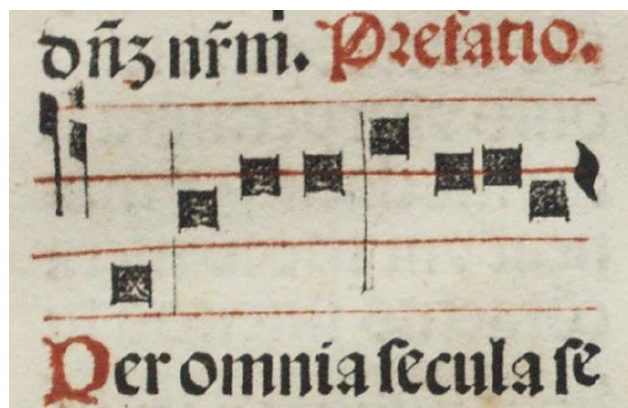 dñꝫ nr̄m. Prefatio.
Per omnia secula se